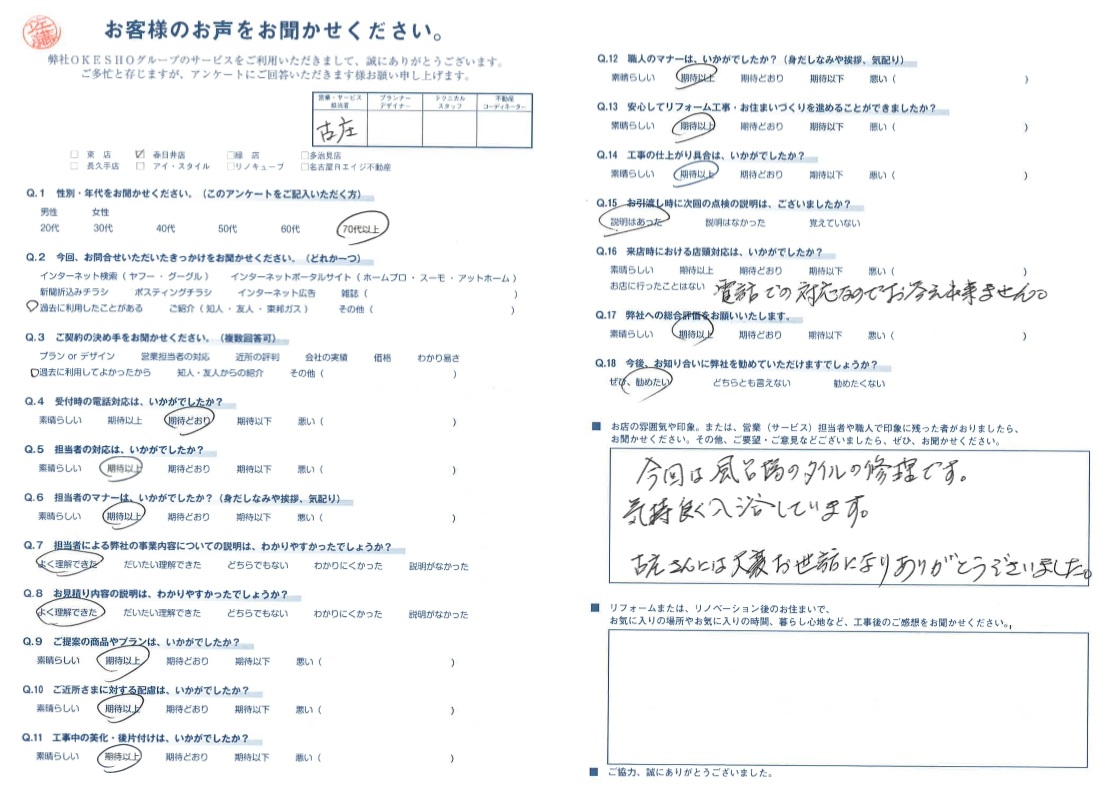 佐藤
お客様のお声をお聞かせください。
弊社OKESHOグループのサービスをご利用いただきまして、誠にありがとうございます。
ご多忙と存じますが、アンケートにご回答いただきます様お願い申し上げます。
営業・サービス担当者 プランナーデザイナー テクニカルスタッフ 不動産コーディネーター
古庄
□ 東 店 ☑ 春日井店 □緑 店 □多治見店
□ 長久手店 □ アイ・スタイル □リノキューブ □名古屋Rエイジ不動産
Q.1 性別・年代をお聞かせください。(このアンケートをご記入いただく方)
男性 女性
20代 30代 40代 50代 60代 70代以上
Q.2 今回、お問合せいただいたきっかけをお聞かせください。(どれか一つ)
インターネット検索(ヤフー・グーグル) インターネットポータルサイト(ホームプロ・スーモ・アットホーム)
新聞折込みチラシ ポスティングチラシ インターネット広告 雑誌( )
過去に利用したことがある ご紹介(知人・友人・東邦ガス) その他( )
Q.3 ご契約の決め手をお聞かせください。(複数回答可)
プラン or デザイン 営業担当者の対応 近所の評判 会社の実績 価格 わかり易さ
過去に利用してよかったから 知人・友人からの紹介 その他( )
Q.4 受付時の電話対応は、いかがでしたか?
素晴らしい 期待以上 期待どおり 期待以下 悪い( )
Q.5 担当者の対応は、いかがでしたか?
素晴らしい 期待以上 期待どおり 期待以下 悪い( )
Q.6 担当者のマナーは、いかがでしたか?(身だしなみや挨拶、気配り)
素晴らしい 期待以上 期待どおり 期待以下 悪い( )
Q.7 担当者による弊社の事業内容についての説明は、わかりやすかったでしょうか?
よく理解できた だいたい理解できた どちらでもない わかりにくかった 説明がなかった
Q.8 お見積り内容の説明は、わかりやすかったでしょうか?
よく理解できた だいたい理解できた どちらでもない わかりにくかった 説明がなかった
Q.9 ご提案の商品やプランは、いかがでしたか?
素晴らしい 期待以上 期待どおり 期待以下 悪い( )
Q.10 ご近所さまに対する配慮は、いかがでしたか?
素晴らしい 期待以上 期待どおり 期待以下 悪い( )
Q.11 工事中の美化・後片付けは、いかがでしたか?
素晴らしい 期待以上 期待どおり 期待以下 悪い( )
Q.12 職人のマナーは、いかがでしたか?(身だしなみや挨拶、気配り)
素晴らしい 期待以上 期待どおり 期待以下 悪い( )
Q.13 安心してリフォーム工事・お住まいづくりを進めることができましたか?
素晴らしい 期待以上 期待どおり 期待以下 悪い( )
Q.14 工事の仕上がり具合は、いかがでしたか?
素晴らしい 期待以上 期待どおり 期待以下 悪い( )
Q.15 お引渡し時に次回の点検の説明は、ございましたか?
説明はあった 説明はなかった 覚えていない
Q.16 来店時における店頭対応は、いかがでしたか?
素晴らしい 期待以上 期待どおり 期待以下 悪い(
お店に行ったことはない 電話での対応なのでお答え出来ません。
Q.17 弊社への総合評価をお願いいたします。
素晴らしい 期待以上 期待どおり 期待以下 悪い( )
Q.18 今後、お知り合いに弊社を勧めていただけますでしょうか?
ぜひ、勧めたい どちらとも言えない 勧めたくない
■ お店の雰囲気や印象。または、営業(サービス)担当者や職人で印象に残った者がおりましたら、
お聞かせください。その他、ご要望・ご意見などございましたら、ぜひ、お聞かせください。
今回は風呂場のタイルの修理です。
気持良く入浴しています。
古庄さんには大変お世話になりありがとうございました。
■ リフォームまたは、リノベーション後のお住まいで、
お気に入りの場所やお気に入りの時間、暮らし心地など、工事後のご感想をお聞かせください。
■ ご協力、誠にありがとうございました。